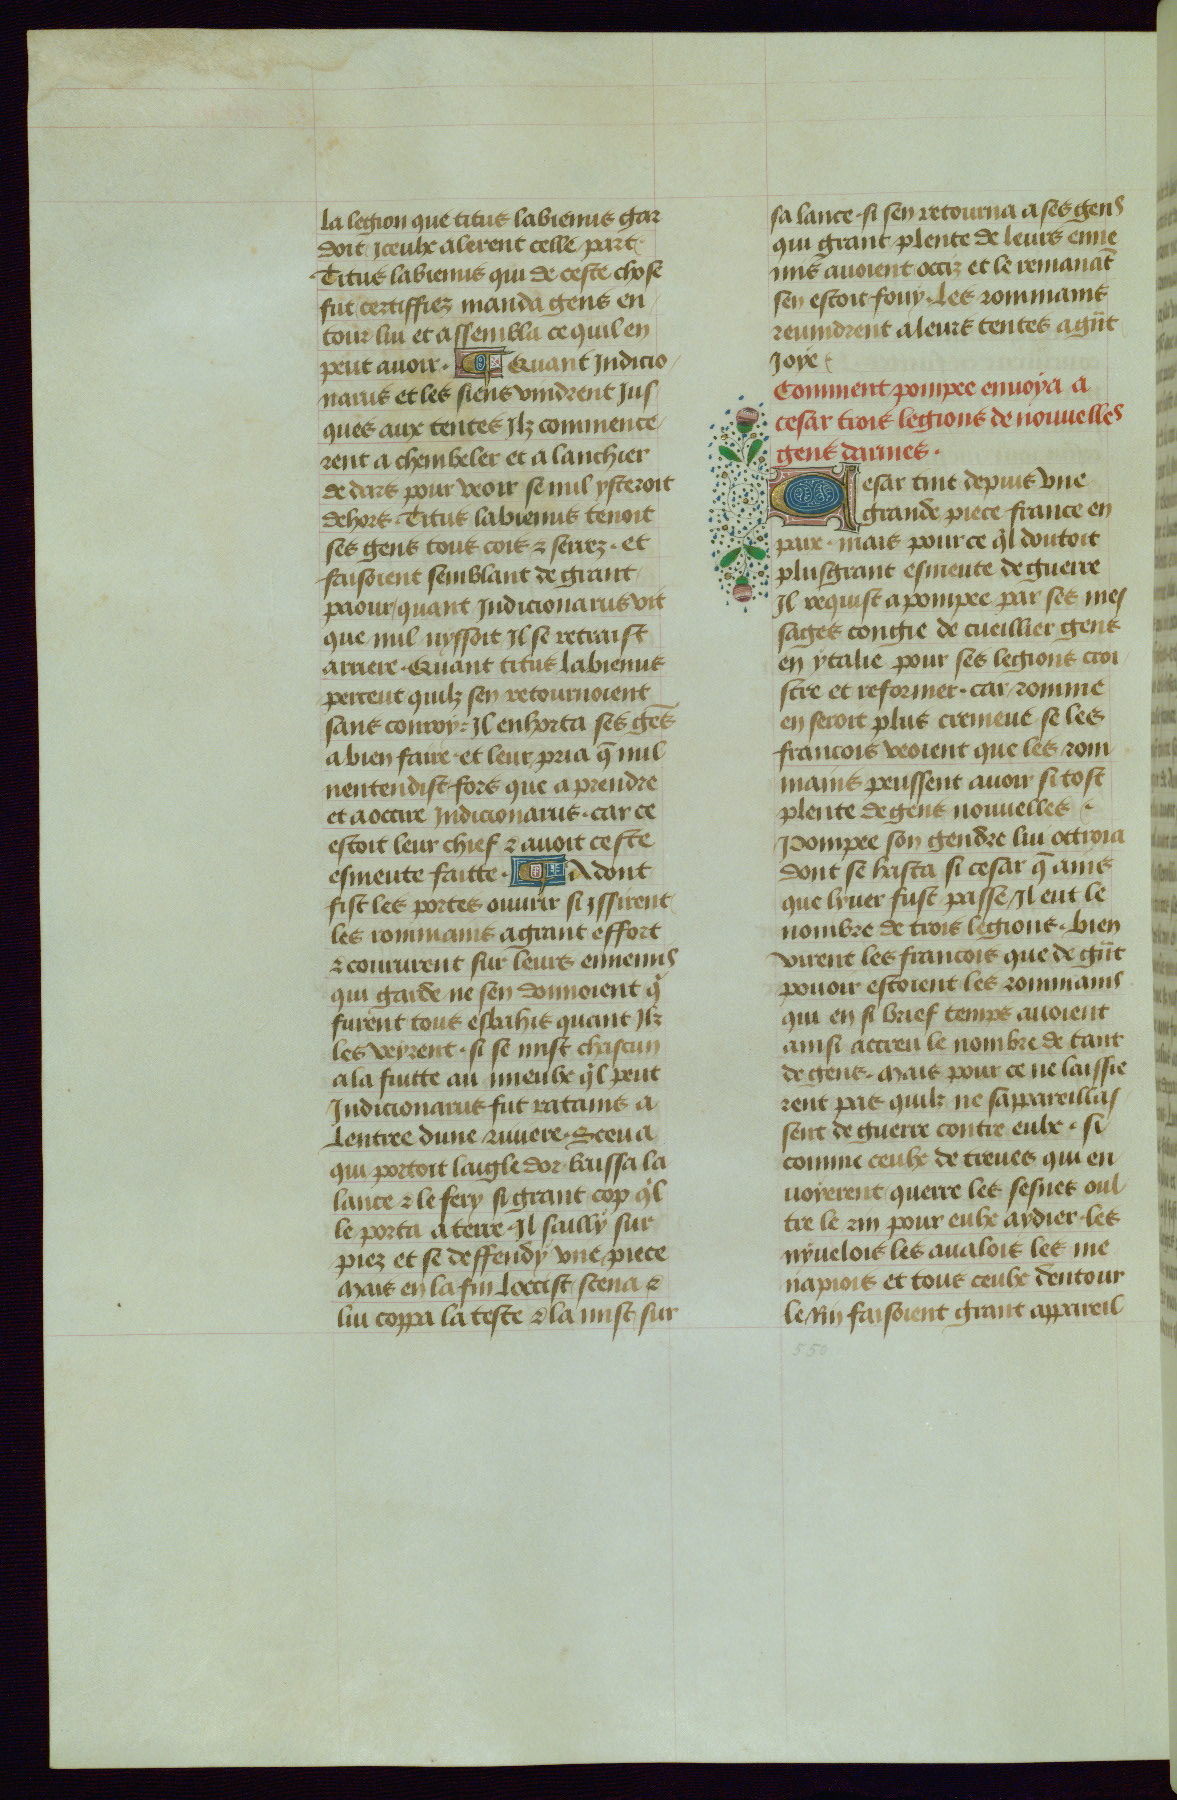 la legion que titus labienus gar
doit Jceulx alerent celle part
Titus labienus qui de ceste chose
fut certiffiez manda gens en
tour lui et assembla ce quil en
peut auoir · Quant Indicio
narus et les siens vindrent Jus
ques aux tentes Jlz commence
rent a chembeler et a lanchier
de dars pour veoir se nul ysteroit
dehors · Titus labienus tenoit
ses gens tous cois ⁊ serrez · et
faisoient semblant de grant
paour quant Indicionarus vit
que nul nyssoit Jl se retraist
arriere · Quant titus labienus
perceut quilz sen retournoient
sans conroy · Jl enhorta ses ge͞s
a bien faire · et leur pria q̄ nul
nentendist fors que a prendre
et a occire Indicionarus · car ce
estoit leur chief ⁊ auoit ceste
esmeute faitte · Adont
fist les portes ouurir si yssirent
les rommains a grant effort
⁊ coururent sur leurs ennemis
qui garde ne sen donnoient q̄
furent tous esbahis quant Jlz
les veyrent · si se mist chascun
a la fuitte au mieulx q̄l peut
Indicionarus fut ratains a
lentree dune riuiere · Sceua
qui portoit laigle dor baissa la
lance ⁊ le fery si grant cop q̄l
le porta a terre · Jl sailly sur
piez et se deffendy vne piece
Mais en la fin loccist sceua ⁊
lui coppa la teste ⁊ la mist sur
sa lance · si sen retourna a ses gens
qui grant plente de leurs enne
mis auoient occiz et le remana͞t
sen estoit fouy · Les rommains
reuindrent a leurs tentes a gr͞t
Joye
Comment pompee enuoya a
cesar trois legions de nouuelles
gens darmes ·
Cesar tint depuis vne
grande piece france en
paix · mais pour ce q̄l doutoit
plusgrant esmeute de guerre
Jl requist a pompee par ses mes
sages congie de cueillier gens
en ytalie pour ses legions croi
stre et reformer · car romme
en seroit plus cremeue se les
francois veoient que les rom
mains peussent auoir si tost
plente de gens nouuelles
Pompee son gendre lui octroia
dont se hasta si cesar q̄ ains
que lyuer fust passe Jl eut le
nombre de trois legions · bien
virent les francois que de gr͞t
pouoir estoient les rommains
qui en si brief temps auoient
ainsi accreu le nombre de tant
de gens · Mais pour ce ne laissie
rent pas quilz ne sappareillas
sent de guerre contre eulx · si
comme ceulx de treues qui en
uoyerent querre les sesnes oul
tre le rin pour eulx aydier · les
nyuelois les aualois les me
napiois et tous ceulx dentour
le rin faisoient grant appareil
550